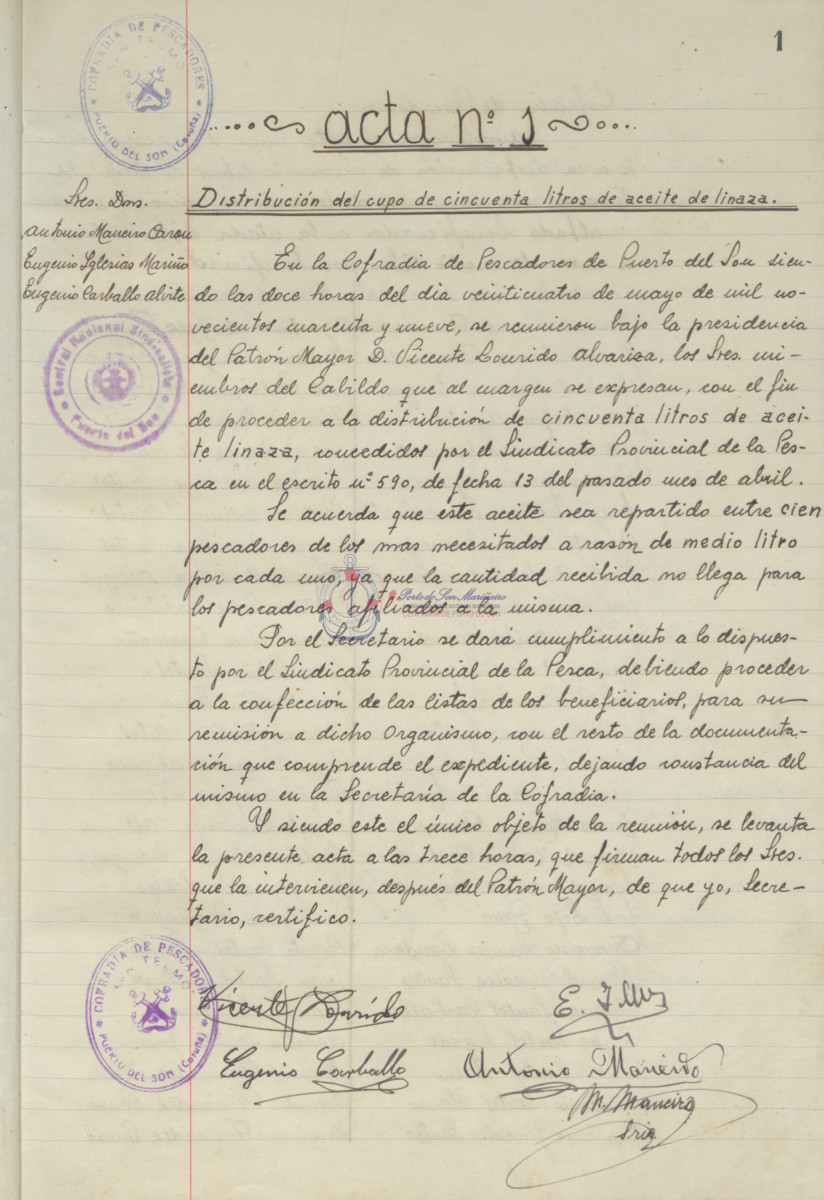 1
COFRADIA DE PESCADORES
SAN TELMO
PUERTO DEL SON (Coruña)
acta nº 1
Sres. Dns.
Antonio Maneiro Carou
Eugenio Iglesias Mariño
Eugenio Carballo Alvite
Central Nacional Sindicalista
Puerto del Son
Distribución del cupo de cincuenta litros de aceite de linaza.
En la Cofradia de Pescadores de Puerto del Son sien-
do las doce horas del dia veinticuatro de mayo de mil no-
vecientos cuarenta y nueve, se reunieron bajo la presidencia
del Patrón Mayor D. Vicente Lourido Alvariza, los Sres. mi-
embros del Cabildo que al margen se expresan, con el fin
de proceder a la distribución de cincuenta litros de acei-
te linaza, concedidos por el Sindicato Provincial de la Pes-
ca en el escrito nº 590, de fecha 13 del pasado mes de abril.
Se acuerda que este aceite sea repartido entre cien
pescadores de los mas necesitados a rasón de medio litro
por cada uno, ya que la cantidad recibida no llega para
los pescadores afiliados a la misma.
Porto do Son Mariñeiro
Por el Secretario se dará cumplimiento a lo dispues-
to por el Sindicato Provincial de la Pesca, debiendo proceder
a la confección de las listas de los beneficiarios, para su
remisión a dicho Organismo, con el resto de la documenta-
ción que comprende el expediente, dejando constancia del
mismo en la Secretaría de la Cofradia.
Y siendo este el único objeto de la reunión, se levanta
la presente acta a las trece horas, que firman todos los Sres.
que la intervienen, después del Patrón Mayor, de que yo, Secre-
tario, certifico.
COFRADIA DE PESCADORES
SAN TELMO
PUERTO DEL SON (Coruña)
Vicente Lourido
E.
Eugenio Carballo
Antonio Maneiro
M. Maneiro
Srio